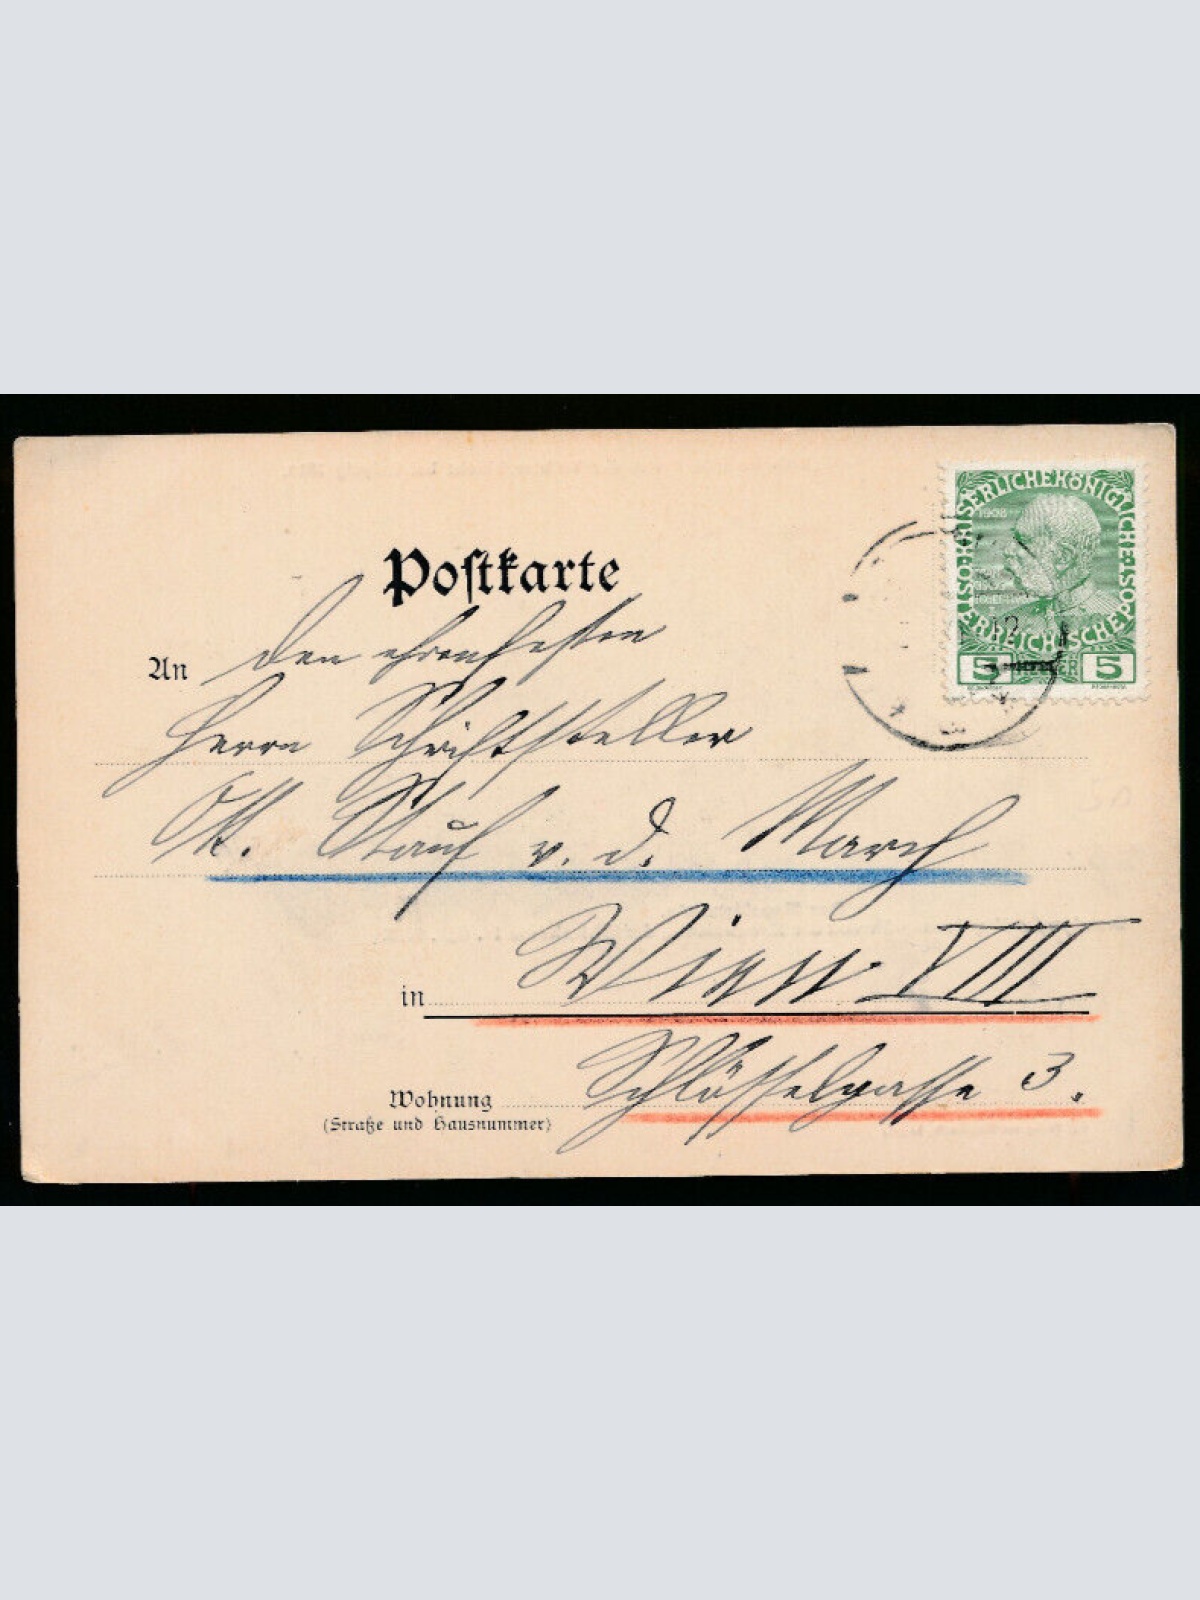 Postkarte
An den ehrenfesten
Herrn Schriftsteller
Ott. Stauf v. d. March
in Wien VIII
Wohnung Schlösselgasse 3.
(Straße und Hausnummer)
KAISERLICHE KÖNIGLICHE ÖSTERREICHISCHE POST
1908
5 HELLER 5